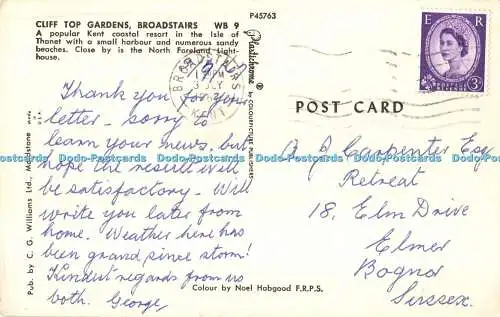 CLIFF TOP GARDENS, BROADSTAIRS WB 9
A popular Kent coastal resort in the Isle of
Thanet with a small harbour and numerous sandy
beaches. Close by is the North Foreland Light-
house.
Thank you for your
letter - sorry to
learn your news, but
hope the result will
be satisfactory. Will
write you later from
home. Weather here has
been grand since storm!
Kindest regards from us
both. George,
Pub. by C. G. Williams Ltd., Maidstone
P45763
Plastichrome
by COLOURPICTURE PUBLISHERS
Colour by Noel Habgood F.R.P.S.
BROADSTAIRS
KENT
E R
3D
POST CARD
J Carpenter Esq
Retreat
18, Elm Drive
Elmer
Bognor
Sussex.
Dodo-Postcards Dodo-Postcards Dodo-Postcards Dodo-Postcards